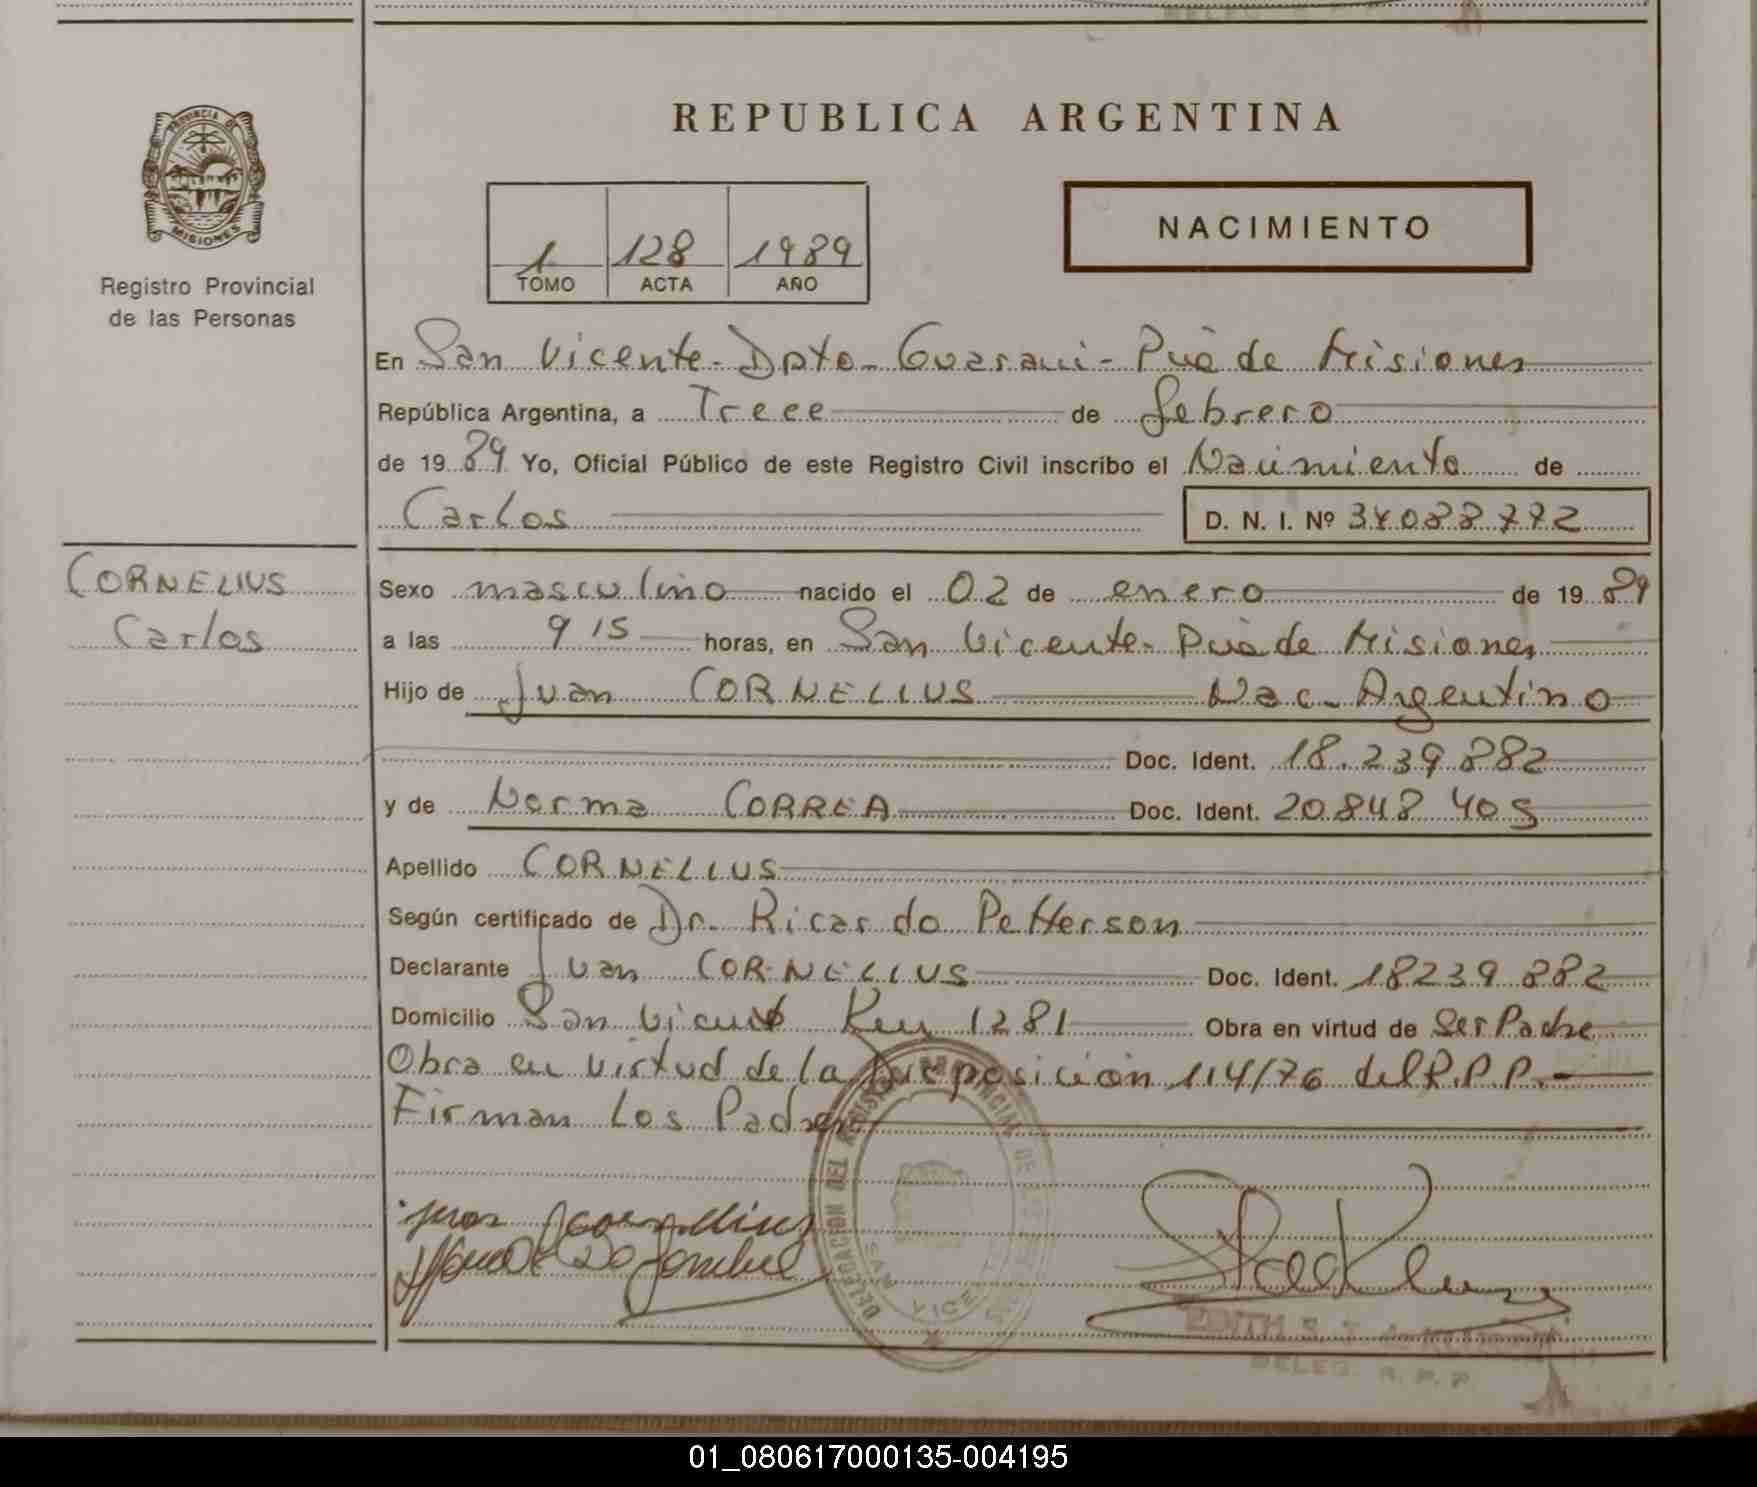 REPUBLICA ARGENTINA
PROVINCIA DE
MISIONES
Registro Provincial
de las Personas
1 128 1989
TOMO ACTA AÑO
NACIMIENTO
En San Vicente - Dpto - Guaraní - Pcia de Misiones
República Argentina, a Trece de febrero
de 1989 Yo, Oficial Público de este Registro Civil inscribo el Nacimiento de
Carlos D. N. I. Nº 34088772
CORNELIUS
Carlos
Sexo masculino nacido el 02 de enero de 1989
a las 9 15 horas, en San Vicente - Pcia de Misiones
Hijo de Juan CORNELIUS Nac. Argentino
Doc. Ident. 18.239.882
y de Norma CORREA Doc. Ident. 20.848 405
Apellido CORNELIUS
Según certificado de Dr. Ricardo Petterson
Declarante Juan CORNELIUS Doc. Ident. 18239.882
Domicilio San Vicente Km 1281 Obra en virtud de Ser Padre
Obra en virtud de la Disposición 114/76 del R.P.P.
Firman Los Padres
DELEGACION DEL REGISTRO PROVINCIAL DE
SAN VICENTE
EDITH S. T.
DELEG. R. P. P.
01_080617000135-004195